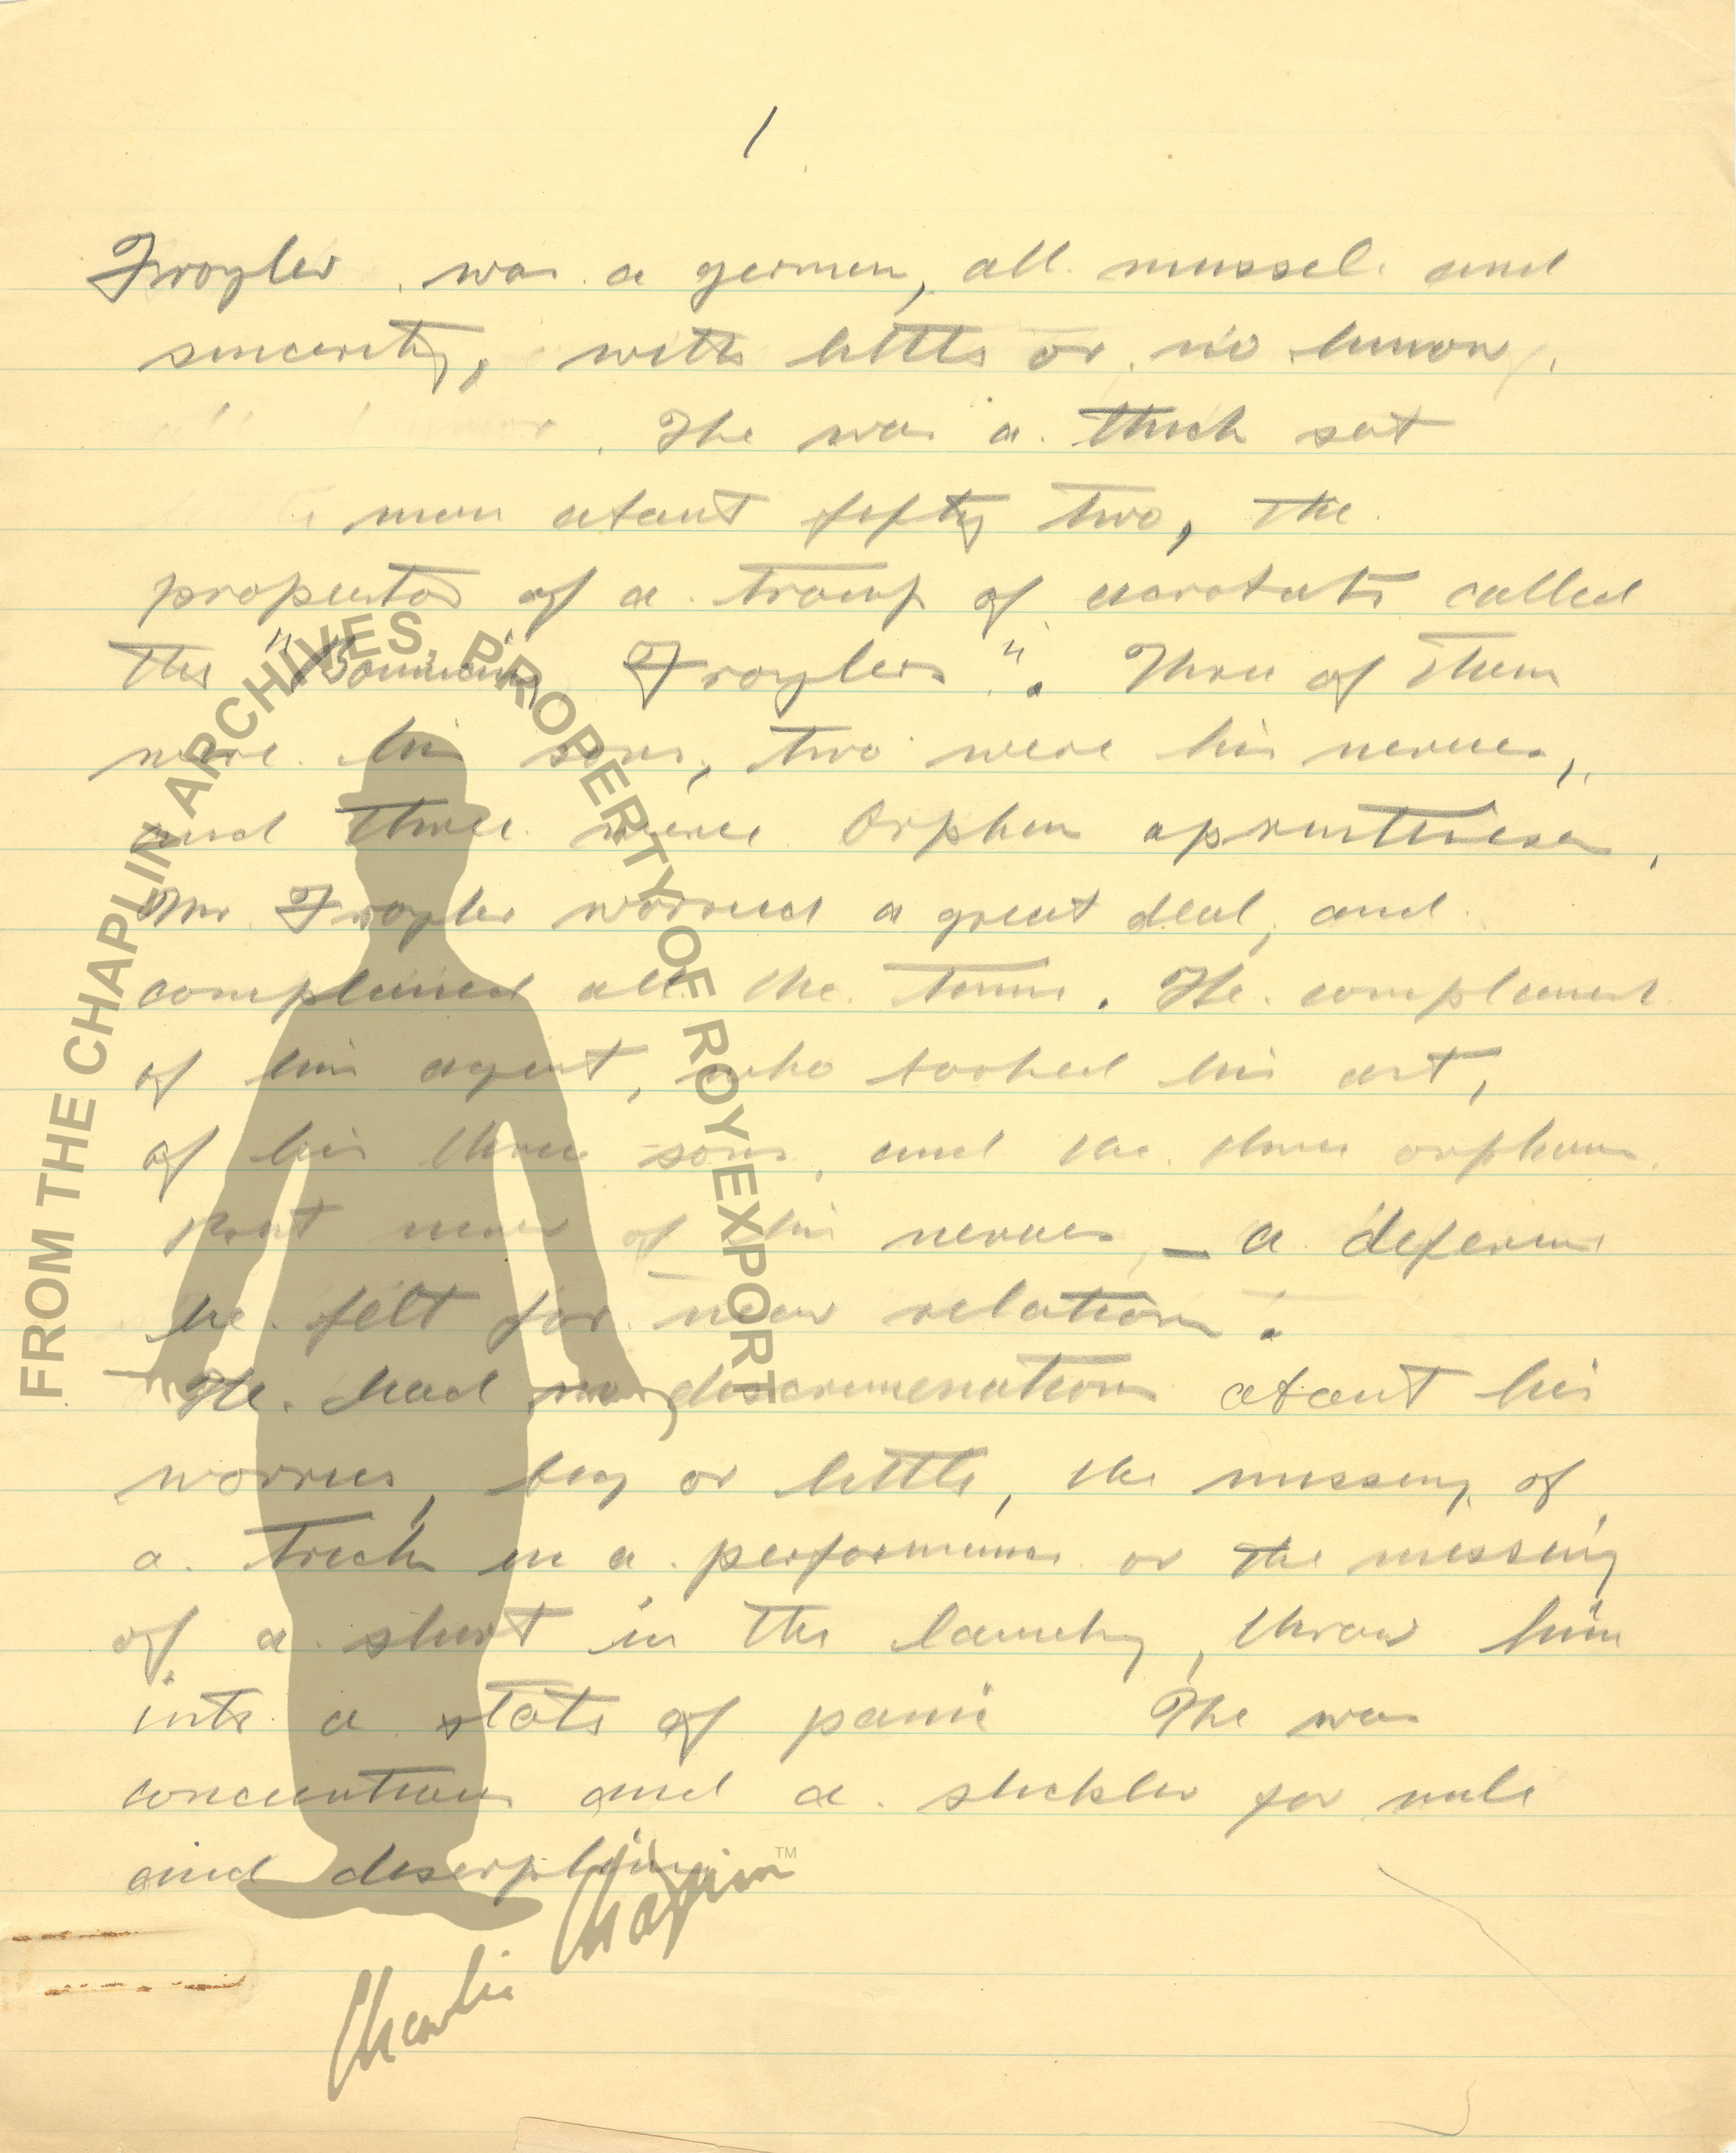 1
Froyler was a german, all mussel and
sincerity, with little or no humor,
He was a thick set
man about fifty two, the
proprietor of a troup of acrobats called
the "Bouncing Froylers". Three of them
were his sons, two were his neices,
and three were Orphan
Mr Froyler worried a great deal, and
complained all the time. He complained
of his agent, who booked his act,
of his three sons, and the three orphans.
But never of his neices — a deference
he felt for new relations.
He had no discrimination about his
worries, big or little, the missing of
a trick in a performance or the missing
of a shirt in the laundry, throw him
into a state of panic He was
and a stickler for rule
and discipline
FROM THE CHAPLIN ARCHIVES, PROPERTY OF ROY EXPORT
Charlie Chaplin™